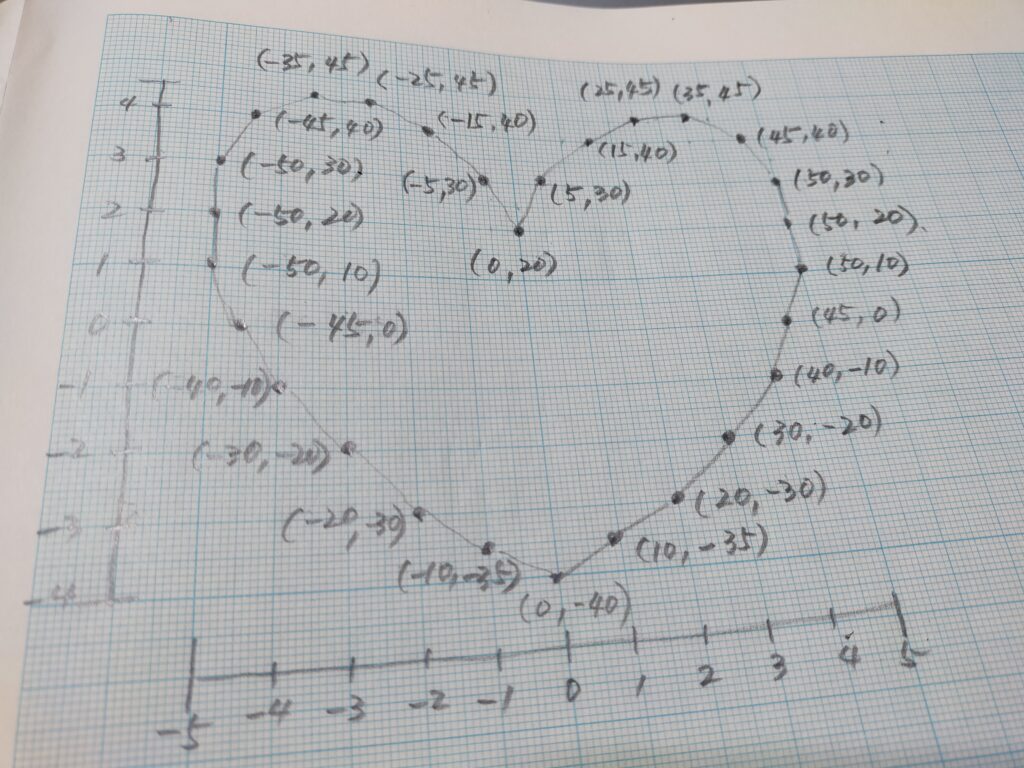 (-35, 45) (-25, 45)
(25,45) (35,45)
4 (-45, 40) (-15, 40) (15,40) (45,40)
3 (-50, 30) (-5,30) (5,30) (50,30)
2 (-50, 20) (50, 20)
(0, 20)
1 (-50, 10) (50,10)
0 (-45,0) (45, 0)
-1 (-40,-10) (40,-10)
-2 (-30,-20) (30,-20)
-3 (-20,-30) (20,-30)
(-10,-35) (10,-35)
-4 (0,-40)
-5 -4 -3 -2 -1 0 1 2 3 4 5